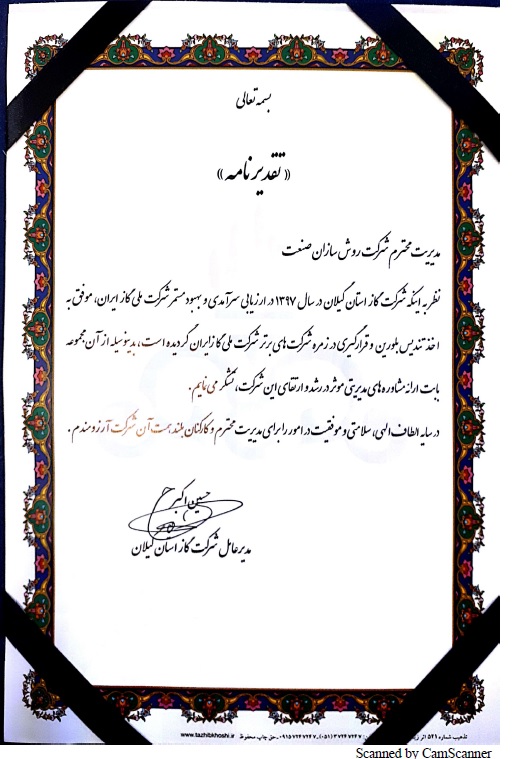 بسمه تعالی
« تقدیر نامه »
مدیریت محترم شرکت روش سازان صنعت
نظر به اینکه شرکت گاز استان گیلان در سال ۱۳۹۷ در ارزیابی سرآمدی و بهبود مستمر شرکت ملی گاز ایران، موفق به
اخذ تندیس بلورین و قرارگیری در زمره شرکت های برتر شرکت ملی گاز ایران گردیده است، بدینوسیله از آن مجموعه
بابت ارائه مشاوره های مدیریتی موثر در رشد و ارتقای این شرکت، تشکر می نمایم.
در سایه الطاف الهی، سلامتی و موفقیت در امور را برای مدیریت محترم و کارکنان بلند همت آن شرکت آرزومندم.
حسین اکبر
مدیرعامل شرکت گاز استان گیلان
تذهیب شماره ۵۲۱ اثر ۰۹۱۵۷۲۴۷۲۴۷ - (۰۵۱) ۳۷۲۴۷۲۴۷ - حق چاپ محفوظ www.tazhibkhoshi.ir
Scanned by CamScanner